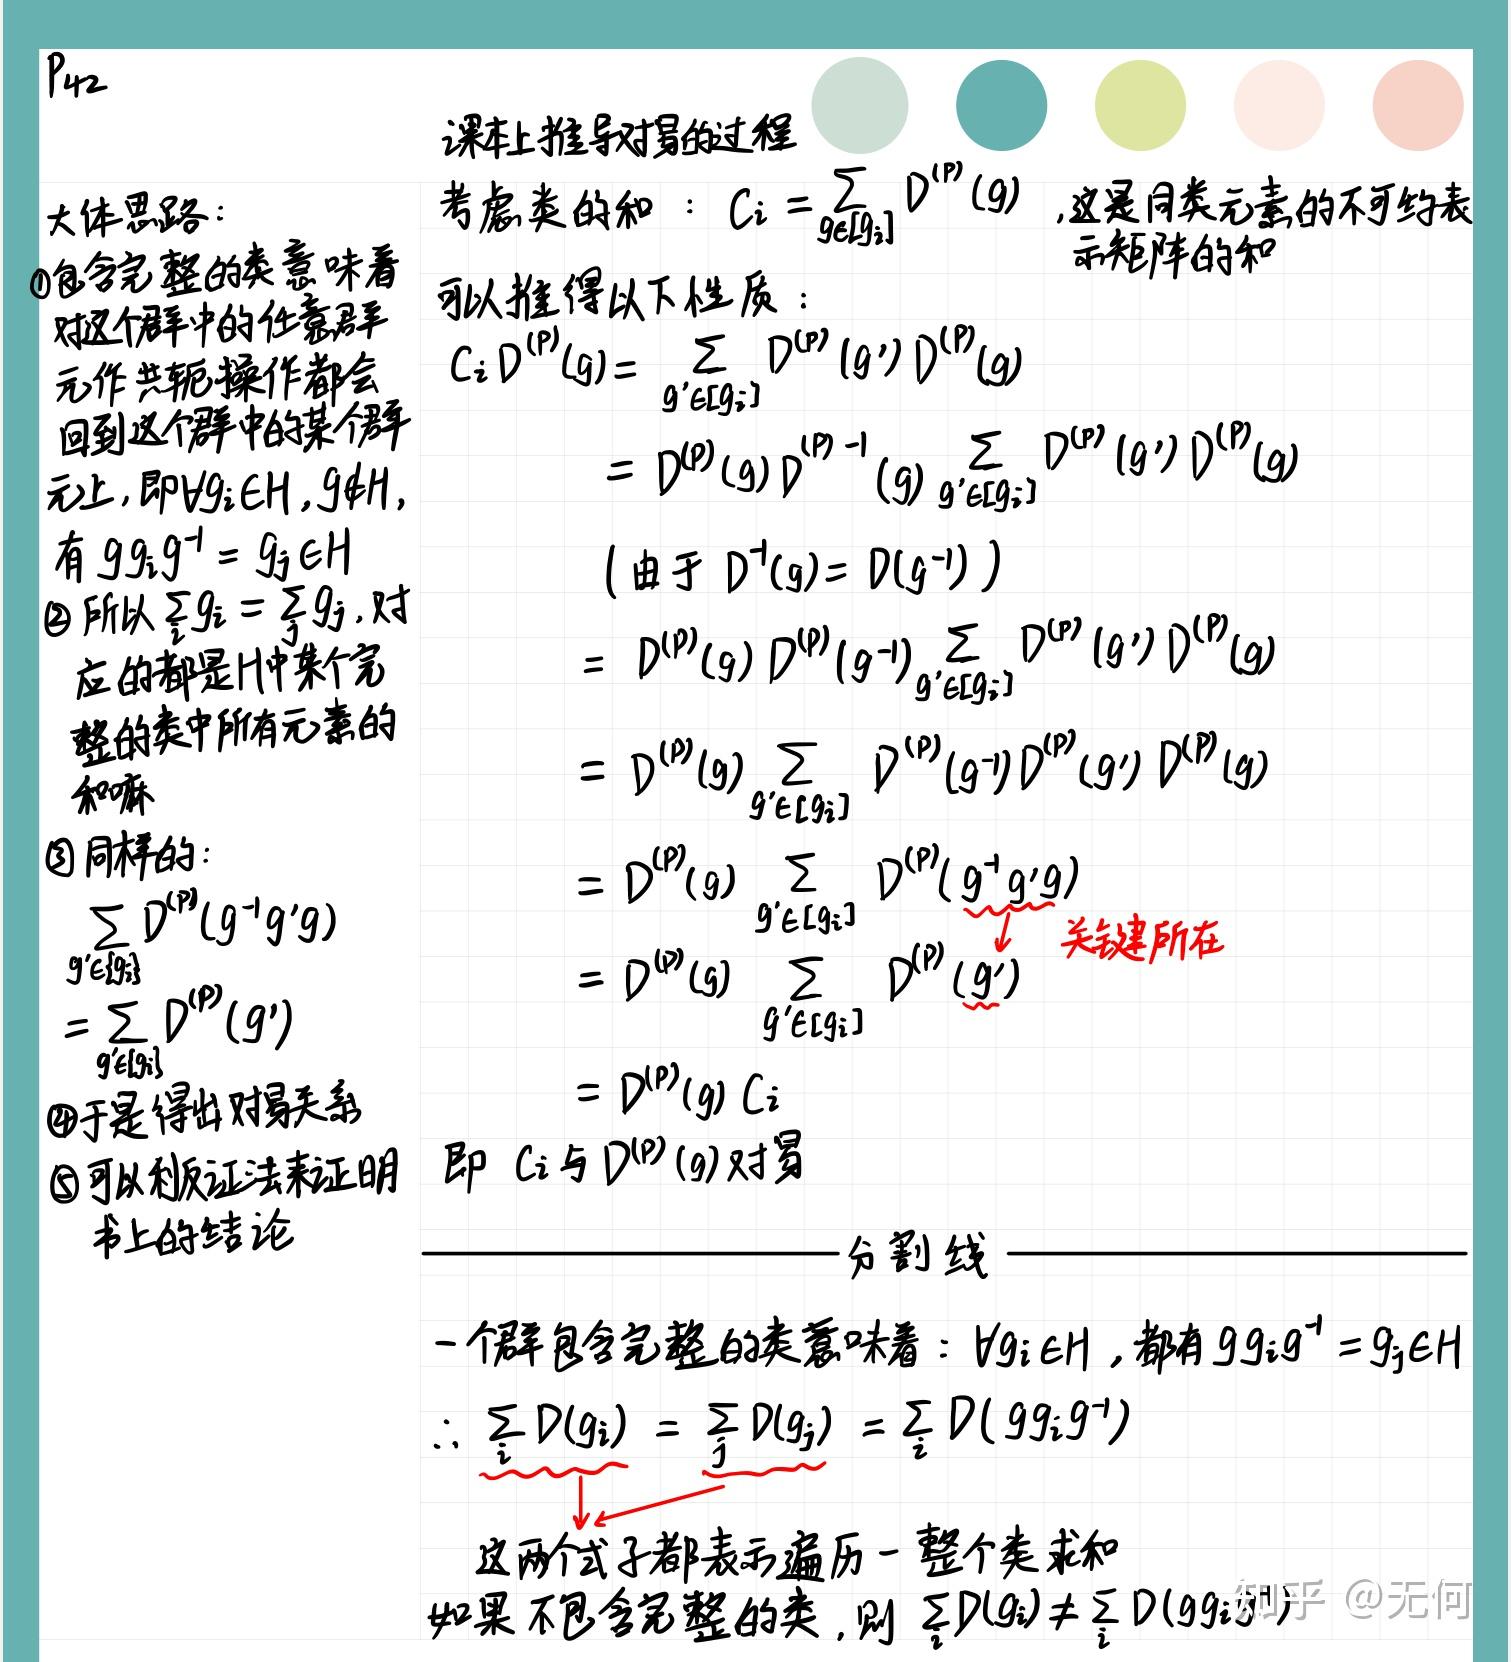 P42
大体思路：
①包含完整的类意味着
对这个群中的任意群
元作共轭操作都会
回到这个群中的某个群
元上，即∀gᵢ∈H，g∉H，
有 ggᵢg⁻¹ = gⱼ∈H
② 所以 ∑ᵢ gᵢ = ∑ⱼ gⱼ，对
应的都是H中某个完
整的类中所有元素的
和嘛
③ 同样的：
∑_{g'∈[gᵢ]} D⁽ᴾ⁾(g⁻¹g'g)
= ∑_{g'∈[gᵢ]} D⁽ᴾ⁾(g')
④于是得出对易关系
⑤可以利反证法来证明
书上的结论
课本上推导对易的过程
考虑类的和： Cᵢ = ∑_{g∈[gᵢ]} D⁽ᴾ⁾(g) ，这是同类元素的不可约表
示矩阵的和
可以推得以下性质：
Cᵢ D⁽ᴾ⁾(g) = ∑_{g'∈[gᵢ]} D⁽ᴾ⁾(g') D⁽ᴾ⁾(g)
= D⁽ᴾ⁾(g) D⁽ᴾ⁾⁻¹(g) ∑_{g'∈[gᵢ]} D⁽ᴾ⁾(g') D⁽ᴾ⁾(g)
(由于 D⁻¹(g) = D(g⁻¹))
= D⁽ᴾ⁾(g) D⁽ᴾ⁾(g⁻¹) ∑_{g'∈[gᵢ]} D⁽ᴾ⁾(g') D⁽ᴾ⁾(g)
= D⁽ᴾ⁾(g) ∑_{g'∈[gᵢ]} D⁽ᴾ⁾(g⁻¹) D⁽ᴾ⁾(g') D⁽ᴾ⁾(g)
= D⁽ᴾ⁾(g) ∑_{g'∈[gᵢ]} D⁽ᴾ⁾(g⁻¹g'g)
关键所在
= D⁽ᴾ⁾(g) ∑_{g'∈[gᵢ]} D⁽ᴾ⁾(g')
= D⁽ᴾ⁾(g) Cᵢ
即 Cᵢ与D⁽ᴾ⁾(g)对易
分割线
一个群包含完整的类意味着：∀gᵢ∈H，都有ggᵢg⁻¹ = gⱼ∈H
∴ ∑ᵢ D(gᵢ) = ∑ⱼ D(gⱼ) = ∑ᵢ D(ggᵢg⁻¹)
这两个式子都表示遍历一整个类求和
如果不包含完整的类，则 ∑ᵢ D(gᵢ) ≠ ∑ᵢ D(ggᵢg⁻¹)
知乎 @无何